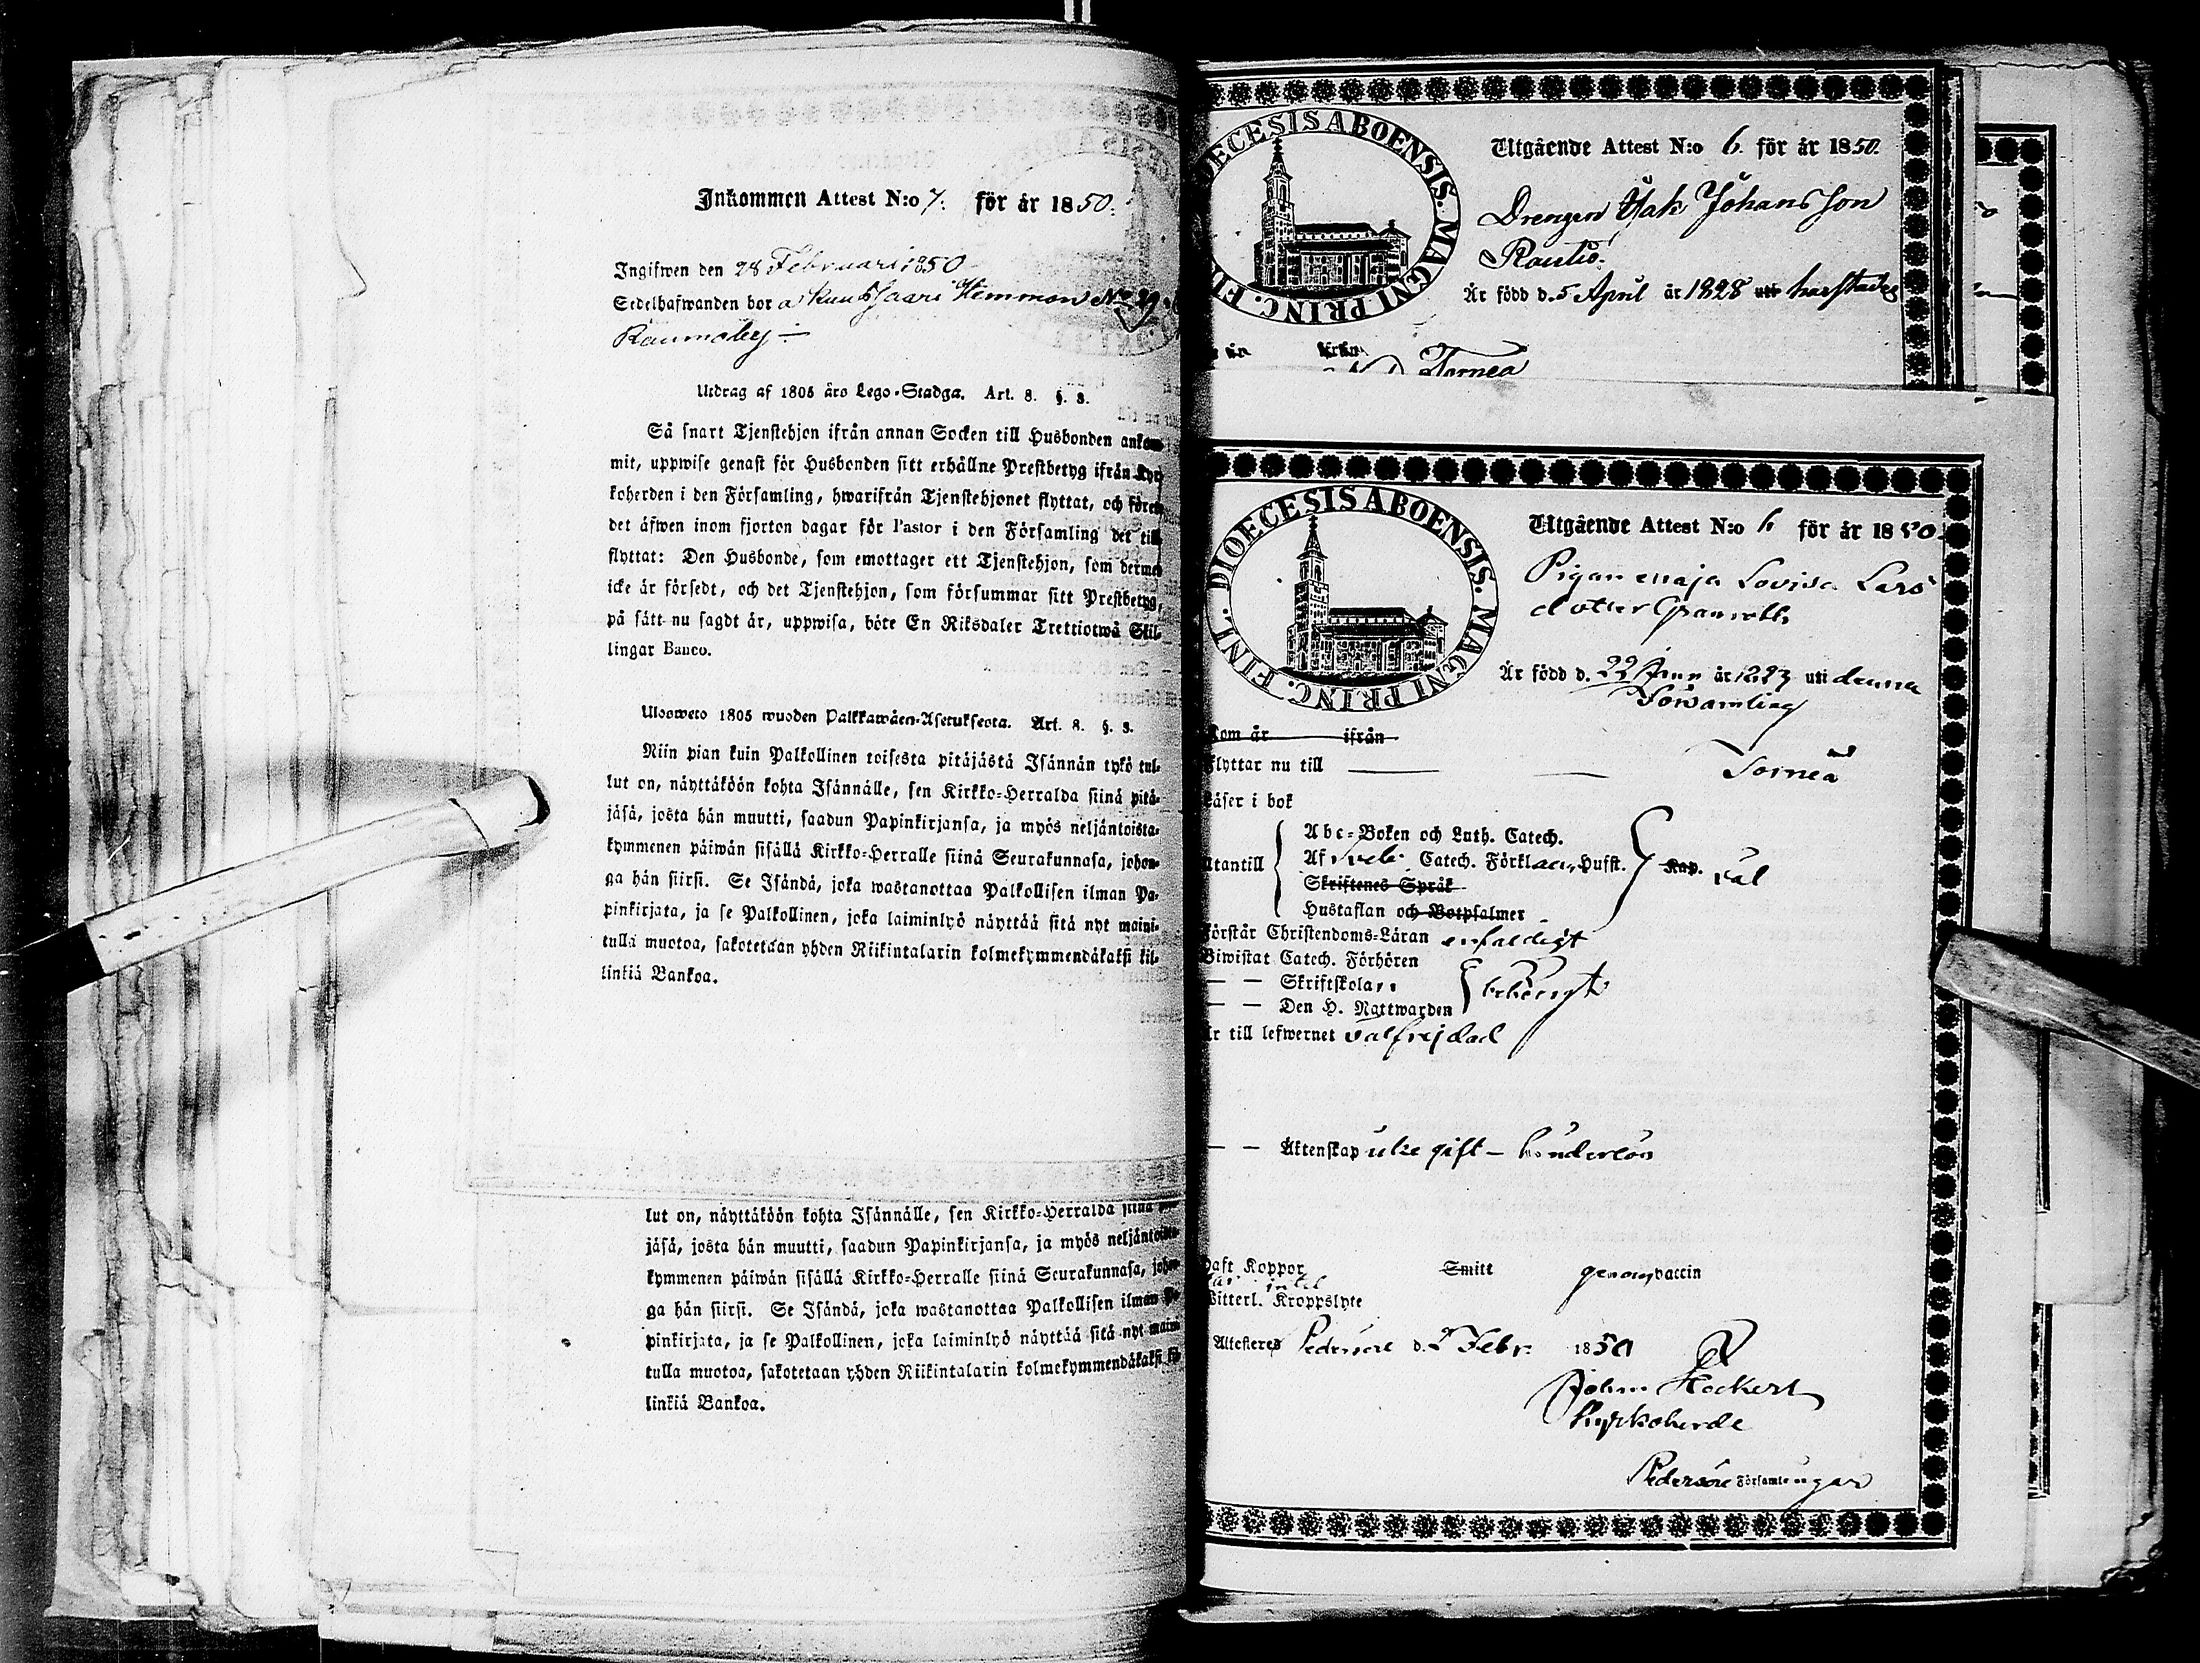 Inkommen Attest N:o 7. för år 1850.
Ingifwen den 28 Februari 1850
Sedelhafwanden bor a Hemman No 29
Raumoby
Utdrag af 1805 års Lego-Stadga. Art. 8. §. 3.
Så snart Tjenstehjon ifrån annan Socken till Husbonden ankom-
mit, uppwise genast för Husbonden sitt erhållne Prestbetyg ifrån Kyr-
koherden i den Församling, hwarifrån Tjenstehjonet flyttat, och förete
det äfwen inom fjorton dagar för Pastor i den Församling det till
flyttat: Den Husbonde, som emottager ett Tjenstehjon, som dermed
icke är försedt, och det Tjenstehjon, som försummar sitt Prestbetyg,
på sätt nu sagdt är, uppwisa, böte En Riksdaler Trettiotwå Skil-
lingar Banco.
Ulosweto 1805 wuoden Palkkawäen-Asetuksesta. Art. 8. §. 3.
Niin pian kuin Palkollinen toisesta pitäjästä Isännän tykö tul-
lut on, näyttäköön kohta Isännälle, sen Kirkko-Herralda siinä pitä-
jäsä, josta hän muutti, saadun Papinkirjansa, ja myös neljäntoista-
kymmenen päiwän sisällä Kirkko-Herralle siinä Seurakunnasa, johon-
ga hän siirsi. Se Isändä, joka wastanottaa Palkollisen ilman Pa-
pinkirjata, ja se Palkollinen, joka laiminlyö näyttää sitä nyt maini-
tulla muotoa, sakotetaan yhden Riikintalarin kolmekymmendäkaksi kil-
linkiä Bankoa.
lut on, näyttäköön kohta Isännälle, sen Kirkko-Herralda siinä
jäsä, josta hän muutti, saadun Papinkirjansa, ja myös neljäntoista-
kymmenen päiwän sisällä Kirkko-Herralle siinä Seurakunnasa, johon-
ga hän siirsi. Se Isändä, joka wastanottaa Palkollisen ilman Pa-
pinkirjata, ja se Palkollinen, joka laiminlyö näyttää sitä nyt maini-
tulla muotoa, sakotetaan yhden Riikintalarin kolmekymmendäkaksi kil-
linkiä Bankoa.
DIOECESIS ABOENSIS. MAGNI PRINC. FI
Utgående Attest N:o 6. för år 1850.
Drengen Isak Johansson
Rautio
Är född d. 5 April år 1828 uti harstädes
Torneå
DIOECESIS ABOENSIS. MAGNI PRINC. FINL.
Utgående Attest N:o 6 för år 1850.
Pigan Maja Lovisa Lars
dotter Granroth
Är född d. 22 år 1823 uti denna
Församling
Kom år ifrån
Flyttar nu till Torneå
Läser i bok
Abc-Boken och Luth. Catech.
Utantill Af Sveb. Catech. Förklaen, Hufst. Kap. väl
Skriftenes Språk
Hustaflan och Botpsalmer
Förstår Christendoms-Läran enfaldigt
Biwistat Catech. Förhören
— — Skriftskolan
— — Den H. Nattwarden behörigt
Är till lefwernet välfrejdad
— — Äktenskap icke gift - hinderlös
Haft Koppor Smitt genom vaccin
Witterl. Kroppslyte
Attesteres Pedersöre d. 2 Febr. 1850
Johan Hockert
Kyrkoherde
Pedersöre Församlingar